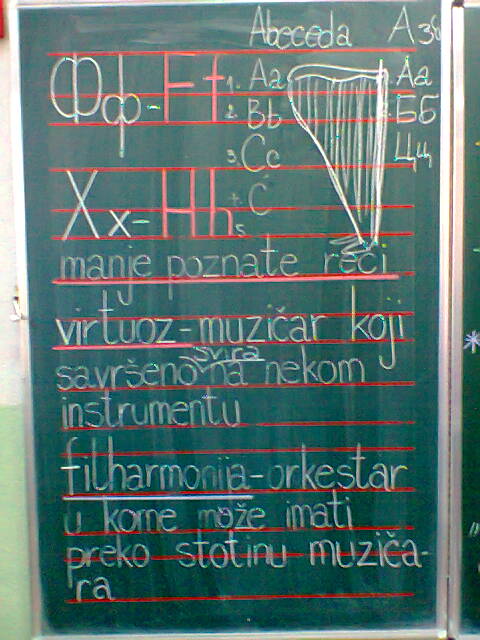 Abeceda Аз
Фф-Ff 1. Aa Аа
2. Bb Бб
3. Cc Цц
Хх-Hh 4. C
5.
manje poznate reči
virtuoz-muzičar koji
svira
savršeno na nekom
instrumentu
filharmonija-orkestar
u kome može imati
preko stotinu muziča-
ra